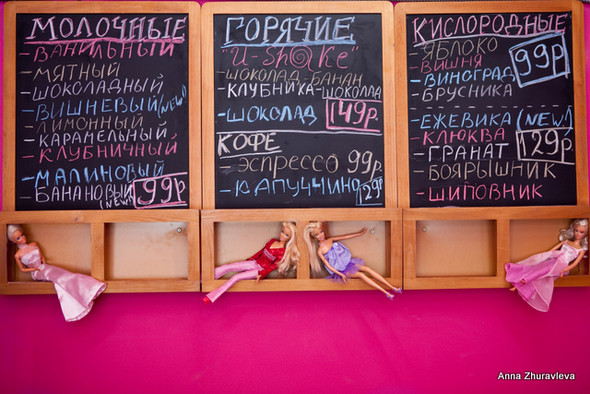 МОЛОЧНЫЕ
-ВАНИЛЬНЫЙ
-МЯТНЫЙ
-ШОКОЛАДНЫЙ
-ВИШНЕВЫЙ (NEW!)
-ЛИМОННЫЙ
-КАРАМЕЛЬНЫЙ
-КЛУБНИЧНЫЙ
-МАЛИНОВЫЙ
-БАНАНОВЫЙ (NEW!) 99р
ГОРЯЧИЕ
"U-Sh@ke"
-ШОКОЛАД-БАНАН
-КЛУБНИКА-ШОКОЛАД
-ШОКОЛАД 149р
КОФЕ
-ЭСПРЕССО 99р
-КАПУЧЧИНО 129р
КИСЛОРОДНЫЕ
-ЯБЛОКО
-ВИШНЯ
-ВИНОГРАД 99р
-БРУСНИКА
-ЕЖЕВИКА (NEW!)
-КЛЮКВА
-ГРАНАТ 129р
-БОЯРЫШНИК
-ШИПОВНИК
Anna Zhuravleva